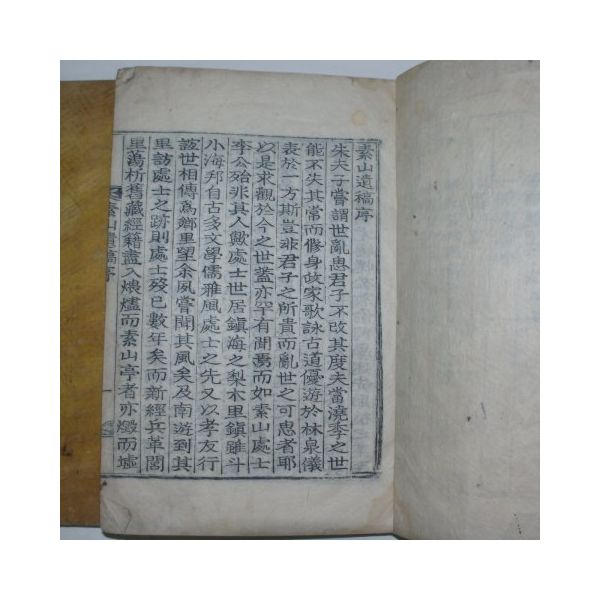 素山遺稿序
朱夫子嘗謂世亂思君子不改其度夫當澆季之世
能不失其常而修身政家歌詠古道優遊於林泉儀
表於一方斯豈非君子之所貴而亂世之可思者耶
以是求觀於今之世蓋亦罕有聞焉而如素山處士
李公殆非其人歟處士世居鎭海之梨木里鎭雖斗
小海邦自古多文學儒雅風處士之先又以孝友行
誼世相傳爲鄕里望余夙嘗聞其風矣及南遊到其
里訪處士之跡則處士歿已數年矣而新經兵革閭
里蕩析舊藏經籍盡入煨燼而素山亭者亦燬而墟
素山遺稿序
一